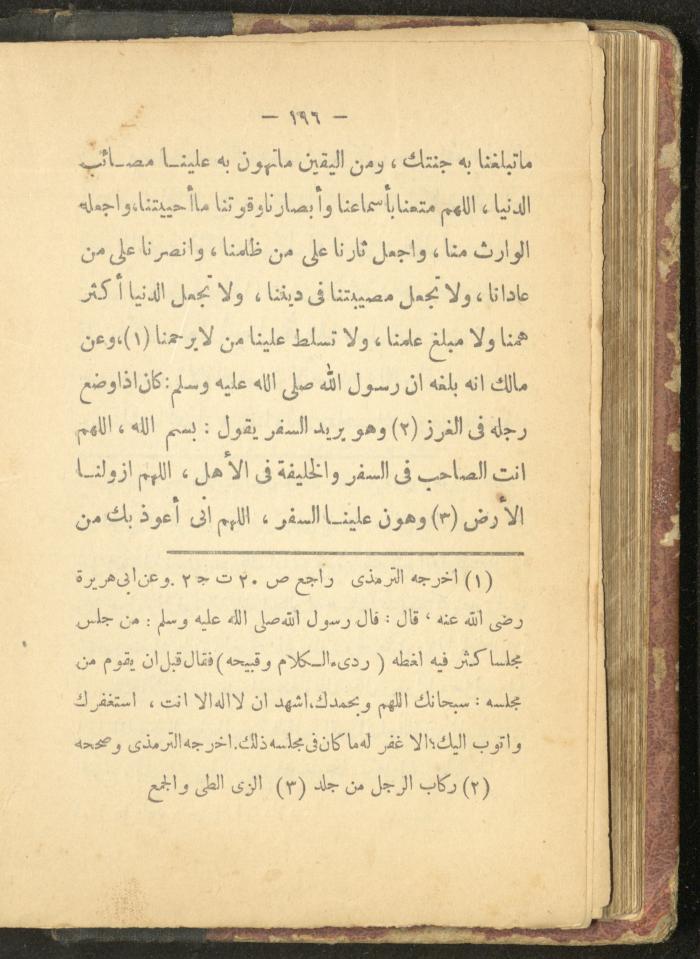 — ١٩٦ —
ماتبلغنا به جنتك ، ومن اليقين ماتهون به علينا مصائب
الدنيا ، اللهم متعنا بأسماعنا وأبصارنا وقوتنا ماأحييتنا،واجعله
الوارث منا ، واجعل ثارنا على من ظلمنا ، وانصرنا على من
عادانا ، ولا تجعل مصيبتنا فى ديننا ، ولا تجعل الدنيا أكثر
همنا ولا مبلغ علمنا ، ولا تسلط علينا من لايرحمنا (١)،وعن
مالك انه بلغه ان رسول الله صلى الله عليه وسلم:كان اذاوضع
رجله فى الغرز (٢) وهو يريد السفر يقول : بسم الله ، اللهم
انت الصاحب فى السفر والخليفة فى الأهل ، اللهم ازولنا
الأرض (٣) وهون علينا السفر ، اللهم انى أعوذ بك من
(١) اخرجه الترمذى راجع ص ٢٠ ت ج ٢ .وعن ابى هريرة
رضى الله عنه ، قال : قال رسول الله صلى الله عليه وسلم : من جلس
مجلسا كثر فيه لغطه ( ردىء الكلام وقبيحه ) فقال قبل ان يقوم من
مجلسه : سبحانك اللهم وبحمدك،اشهد ان لااله الا انت ، استغفرك
واتوب اليك؛الا غفر له ما كان فى مجلسه ذلك.اخرجه الترمذى وصححه
(٢) ركاب الرجل من جلد (٣) الزى الطى والجمع